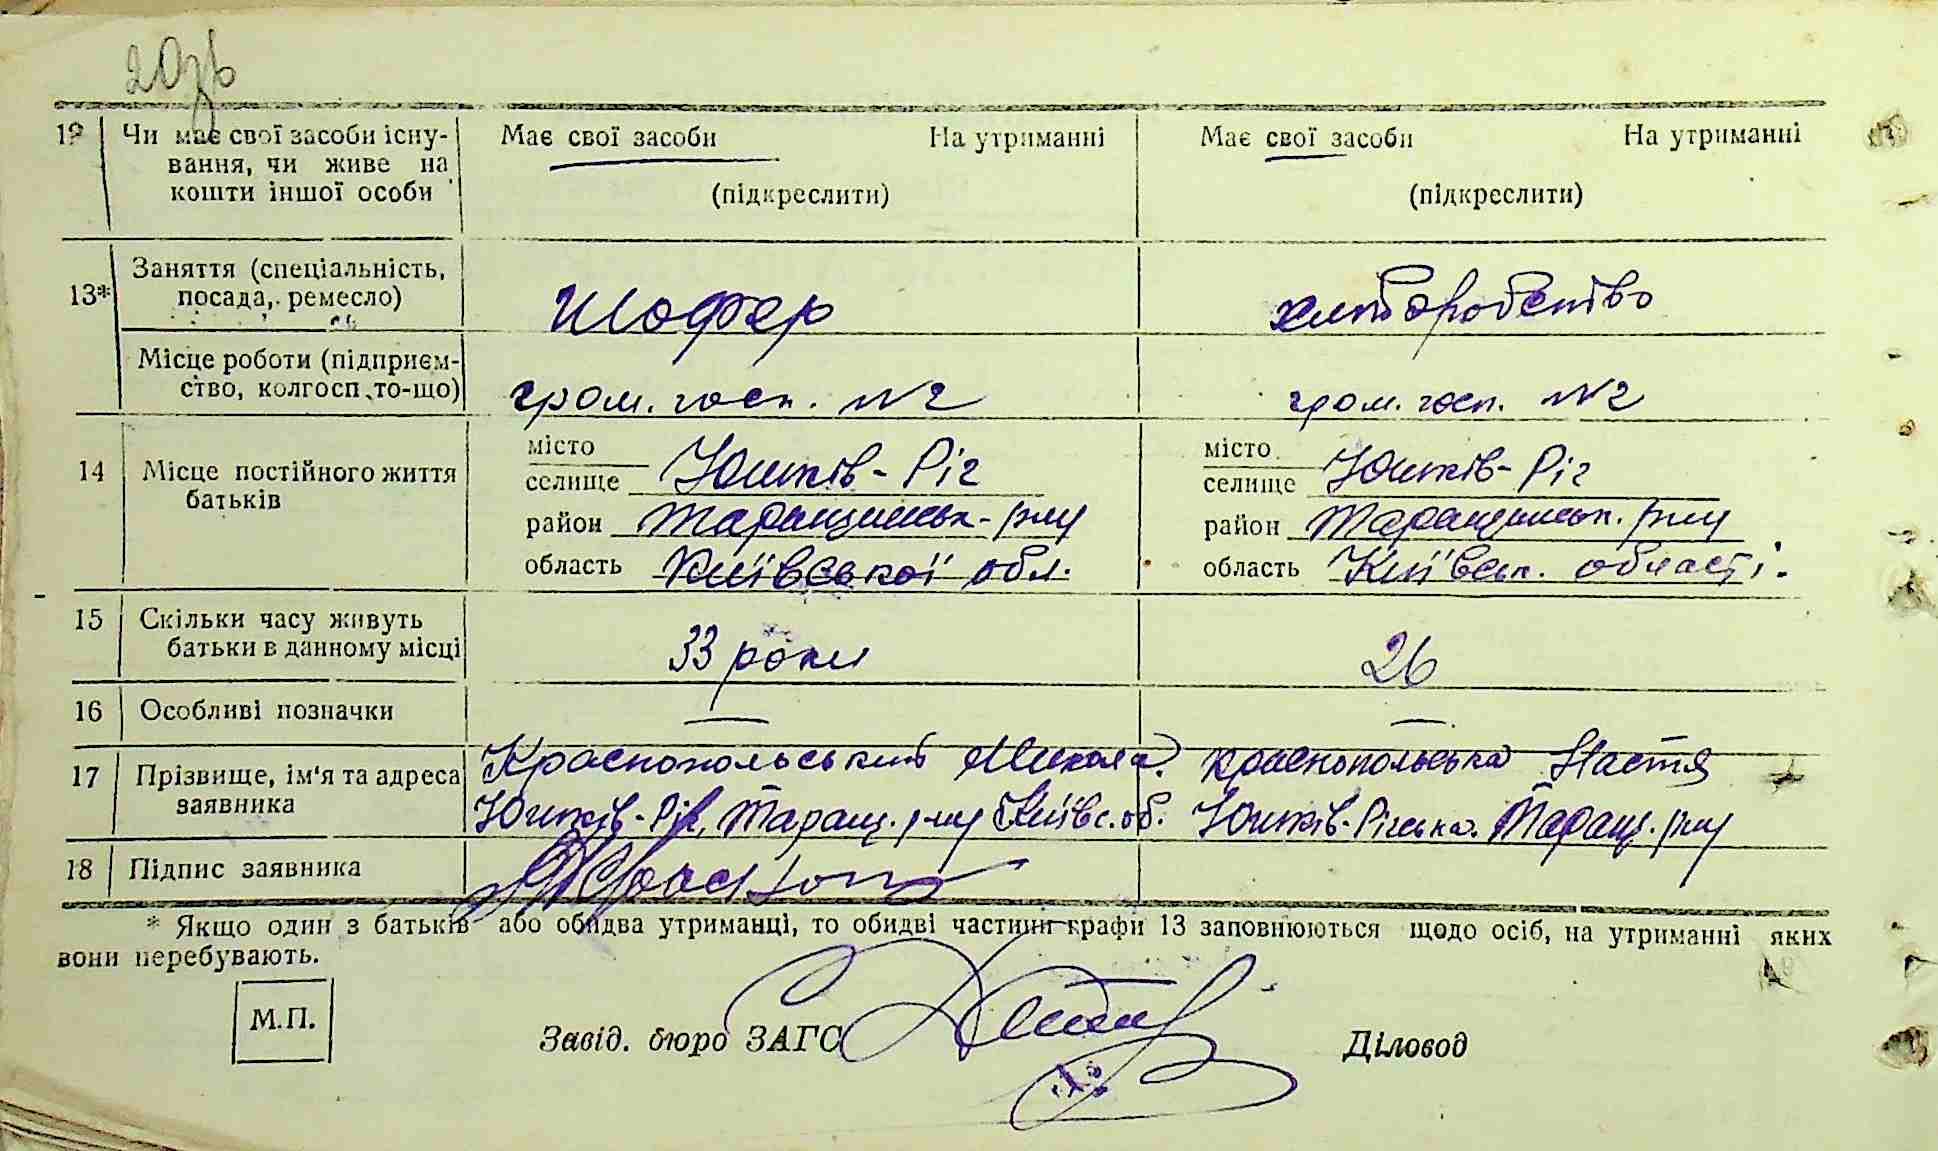 20зв
12 Чи має свої засоби існу- Має свої засоби На утриманні Має свої засоби На утриманні
вання, чи живе на
кошти іншої особи (підкреслити) (підкреслити)
13* Заняття (спеціальність,
посада, ремесло) Шофер хліборобство
Місце роботи (підприєм-
ство, колгосп то-що) гром. госп. №2 гром. госп. №2
14 Місце постійного життя
батьків
місто
селище Юшків-Ріг
район Таращинськ. р-ну
область Київської обл.
місто
селище Юшків-Ріг
район Таращинськ. р-ну
область Київськ. області.
15 Скільки часу живуть
батьки в данному місці 33 роки 26
16 Особливі позначки — —
17 Прізвище, ім'я та адреса Краснопольський Микола. Краснопольська Настя
заявника Юшків-Ріг, Таращ. р-ну Київс. об. Юшків-Рігська. Таращ. р-ну
18 Підпис заявника
* Якщо один з батьків або обидва утриманці, то обидві частини графи 13 заповнюються щодо осіб, на утриманні яких
вони перебувають.
М.П.
Завід. бюро ЗАГС Діловод